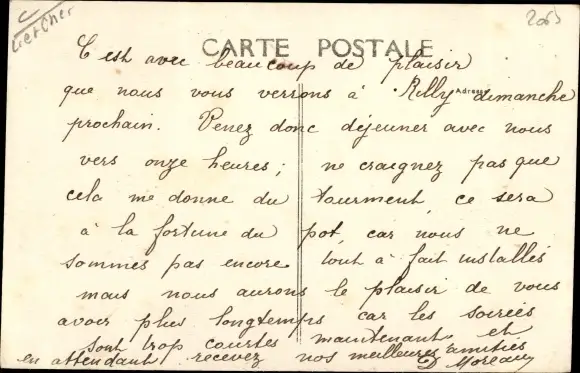 Loir et Cher
2065
CARTE POSTALE
Adresse
C'est avec beaucoup de plaisir
que nous vous verrons à Rilly dimanche
prochain. Venez donc déjeuner avec nous
vers onze heures ; ne craignez pas que
cela me donne du tourment, ce sera
à la fortune du pot, car nous ne
sommes pas encore tout à fait installés
mais nous aurons le plaisir de vous
avoir plus longtemps car les soirées
sont trop courtes maintenant et
en attendant recevez nos meilleures amitiés
D Moreau